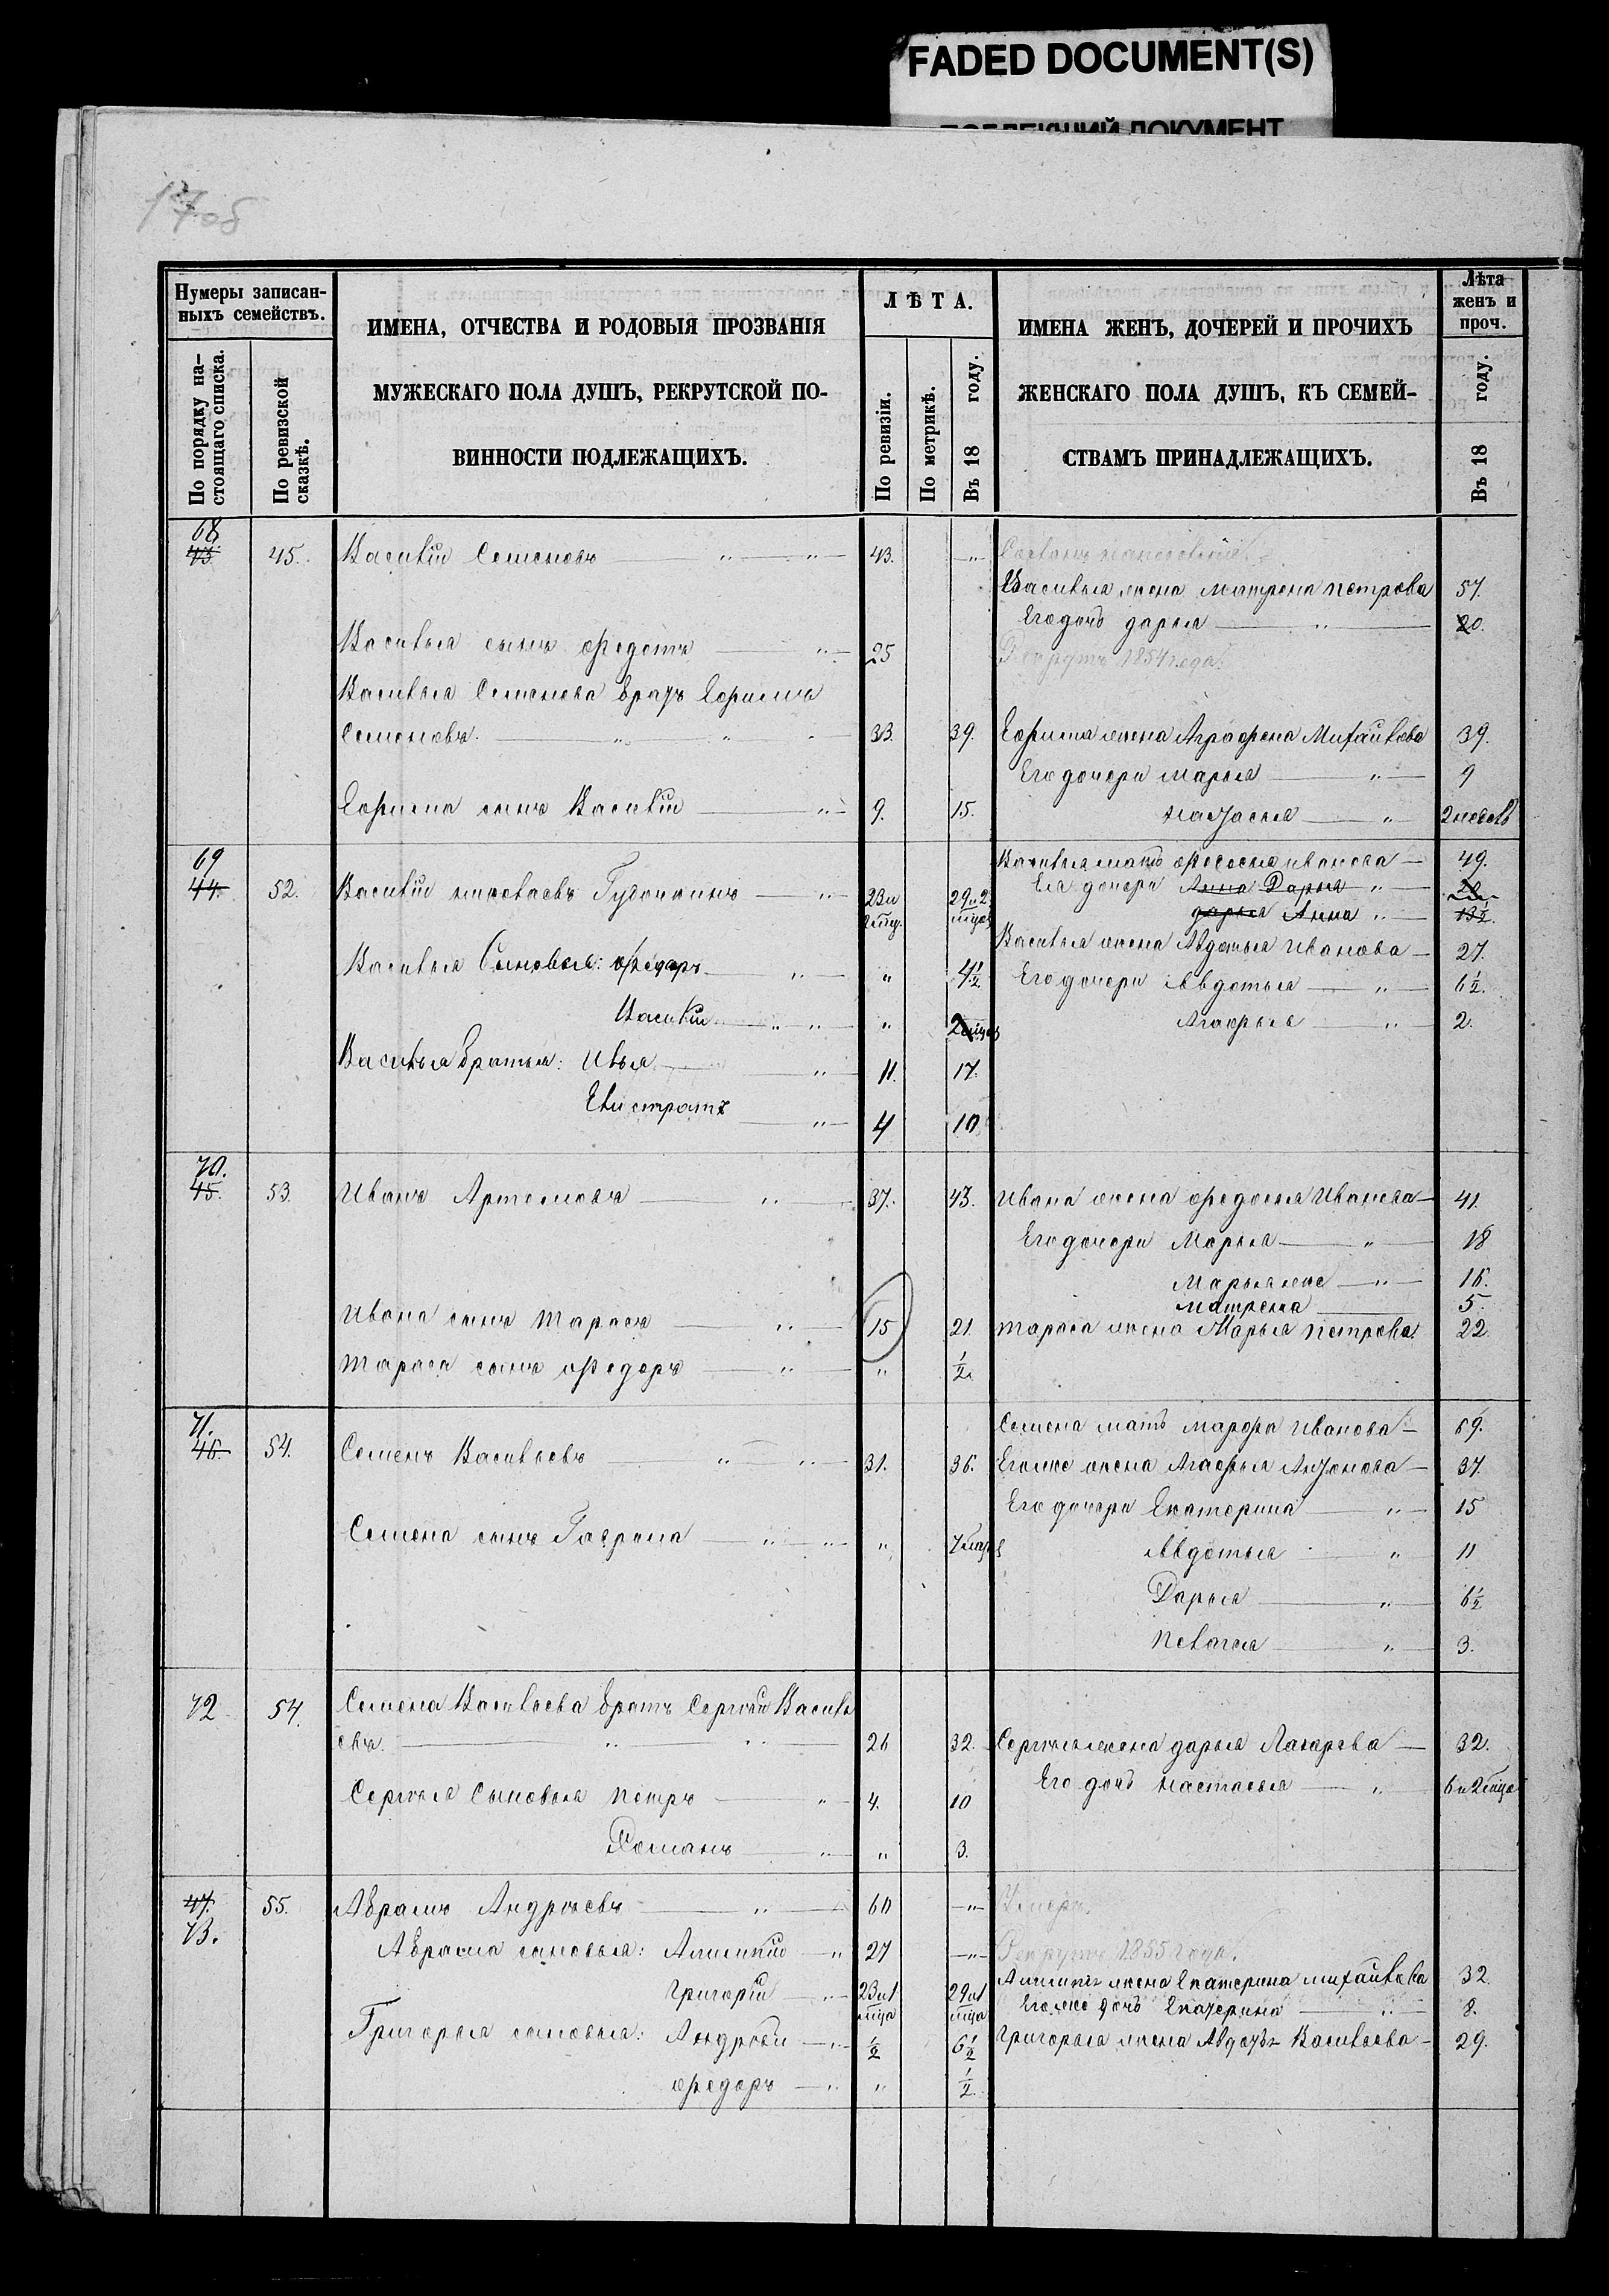 FADED DOCUMENT(S)
17об
Нумеры записан-
ныхъ семействъ.
По порядку на-
стоящаго списка.
По ревизской
сказкѣ.
ИМЕНА, ОТЧЕСТВА И РОДОВЫЯ ПРОЗВАНІЯ
МУЖЕСКАГО ПОЛА ДУШЪ, РЕКРУТСКОЙ ПО-
ВИННОСТИ ПОДЛЕЖАЩИХЪ.
ЛѢТА.
По ревизіи.
По метрикѣ.
Въ 18 году.
ИМЕНА ЖЕНЪ, ДОЧЕРЕЙ И ПРОЧИХЪ
ЖЕНСКАГО ПОЛА ДУШЪ, КЪ СЕМЕЙ-
СТВАМЪ ПРИНАДЛЕЖАЩИХЪ.
Лѣта
женъ и
проч.
Въ 18 году.
68.
43. 45. Василій Семеновъ 43. "
Василья жена Матрена Петрова 57.
Его дочь Дарья " 20.
Василья сынъ Федотъ " 25 Рекрутъ 1854 года.
Василья Семенова братъ Ефимъ
Семеновъ " 33. 39. Ефима жена Аграфена Михайлова 39.
Его дочери Марья " 9
Ефима сынъ Василій " 9. 15. Настасья " 2 недѣль
69 Василья мать Федосья Иванова 49.
44. 52. Василій " 23 и 2 мца. 29 и 2 мцов Ея дочери Анна Дарья " 20
Дарья Анна " 13½.
Василья жена Авдотья Иванова 27.
Василья Сыновья: Федоръ " " 4½ Его дочери Авдотья " 6½.
Василій " " 2 мцов Агафья " 2.
Василья братья: Илья " 11. 17.
Евстратъ " 4 10
70.
45. 53. Иванъ Артемовъ " 37. 43. Ивана жена Федосья Иванова 41.
Его дочери Марья " 18
Марья же " 16.
Матрена 5.
Ивана сынъ Тарасъ " 15 21. Тараса жена Марья Петрова 22.
Тараса сынъ Федоръ " " ½.
71. Семена мать Марфа Иванова 69.
46. 54. Семенъ Васильевъ " 31. 36. Его же жена Агафья Антонова 37.
Его дочери Екатерина " 15
Семена сынъ Гаврила " " 7 мцов Авдотья " 11
Дарья " 6½
Пелагея " 3.
72 54. Семена Васильева братъ Сергѣй Василь
евъ. " 26 32. Сергѣя жена Дарья Лазарева 32.
Сергѣя Сыновья Петръ " 4. 10 Его дочь Настасья " 6 и 2 мца
Романъ " " 3.
47. 55. Абрамъ Андреевъ " 60 " Умеръ.
73.
Абрама сыновья: " 27 " Рекрутъ 1855 года.
жена Екатерина Михайлова 32.
Григорій 23 и 1 мца 29 и 1 мца Его же дочь Екатерина " 8.
Григорья сыновья: Андрей " ½ 6½ Григорья жена Авдотья Васильева 29.
Федоръ " " ½.